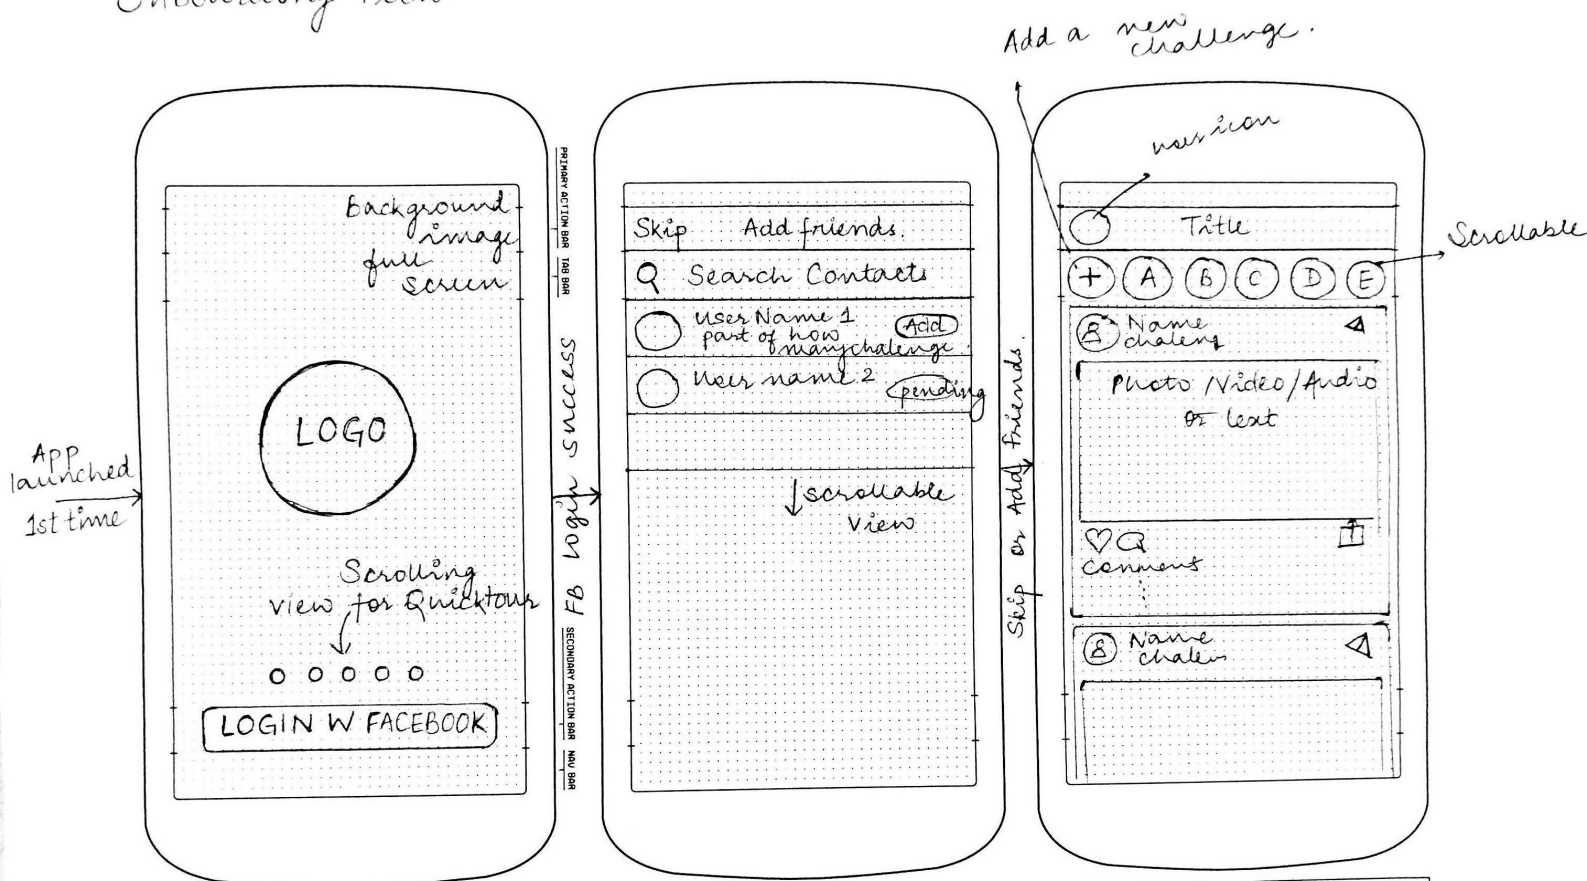 Onboarding
Add a new
challenge.
user icon
Scrollable
App
launched
1st time
Background
image
full
screen
LOGO
Scrolling
view for Quicktour
LOGIN W FACEBOOK
PRIMARY ACTION BAR
TAB BAR
SECONDARY ACTION BAR
NAV BAR
FB Login success
Skip Add friends.
Search Contacts
User Name 1
part of how
many chalenge.
Add
User name 2
pending
scrollable
View
Skip or Add friends.
Title
+ A B C D E
Name
Photo /Video/Audio
or text
Comment
Name